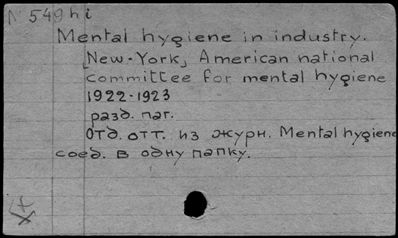 N 549 hi
Mental hygiene in industry.
[New-York, American national
committee for mental hygiene
1922-1923
разд. паг.
Отд. отт. из журн. Mental hygiene
соед. в одну папку.